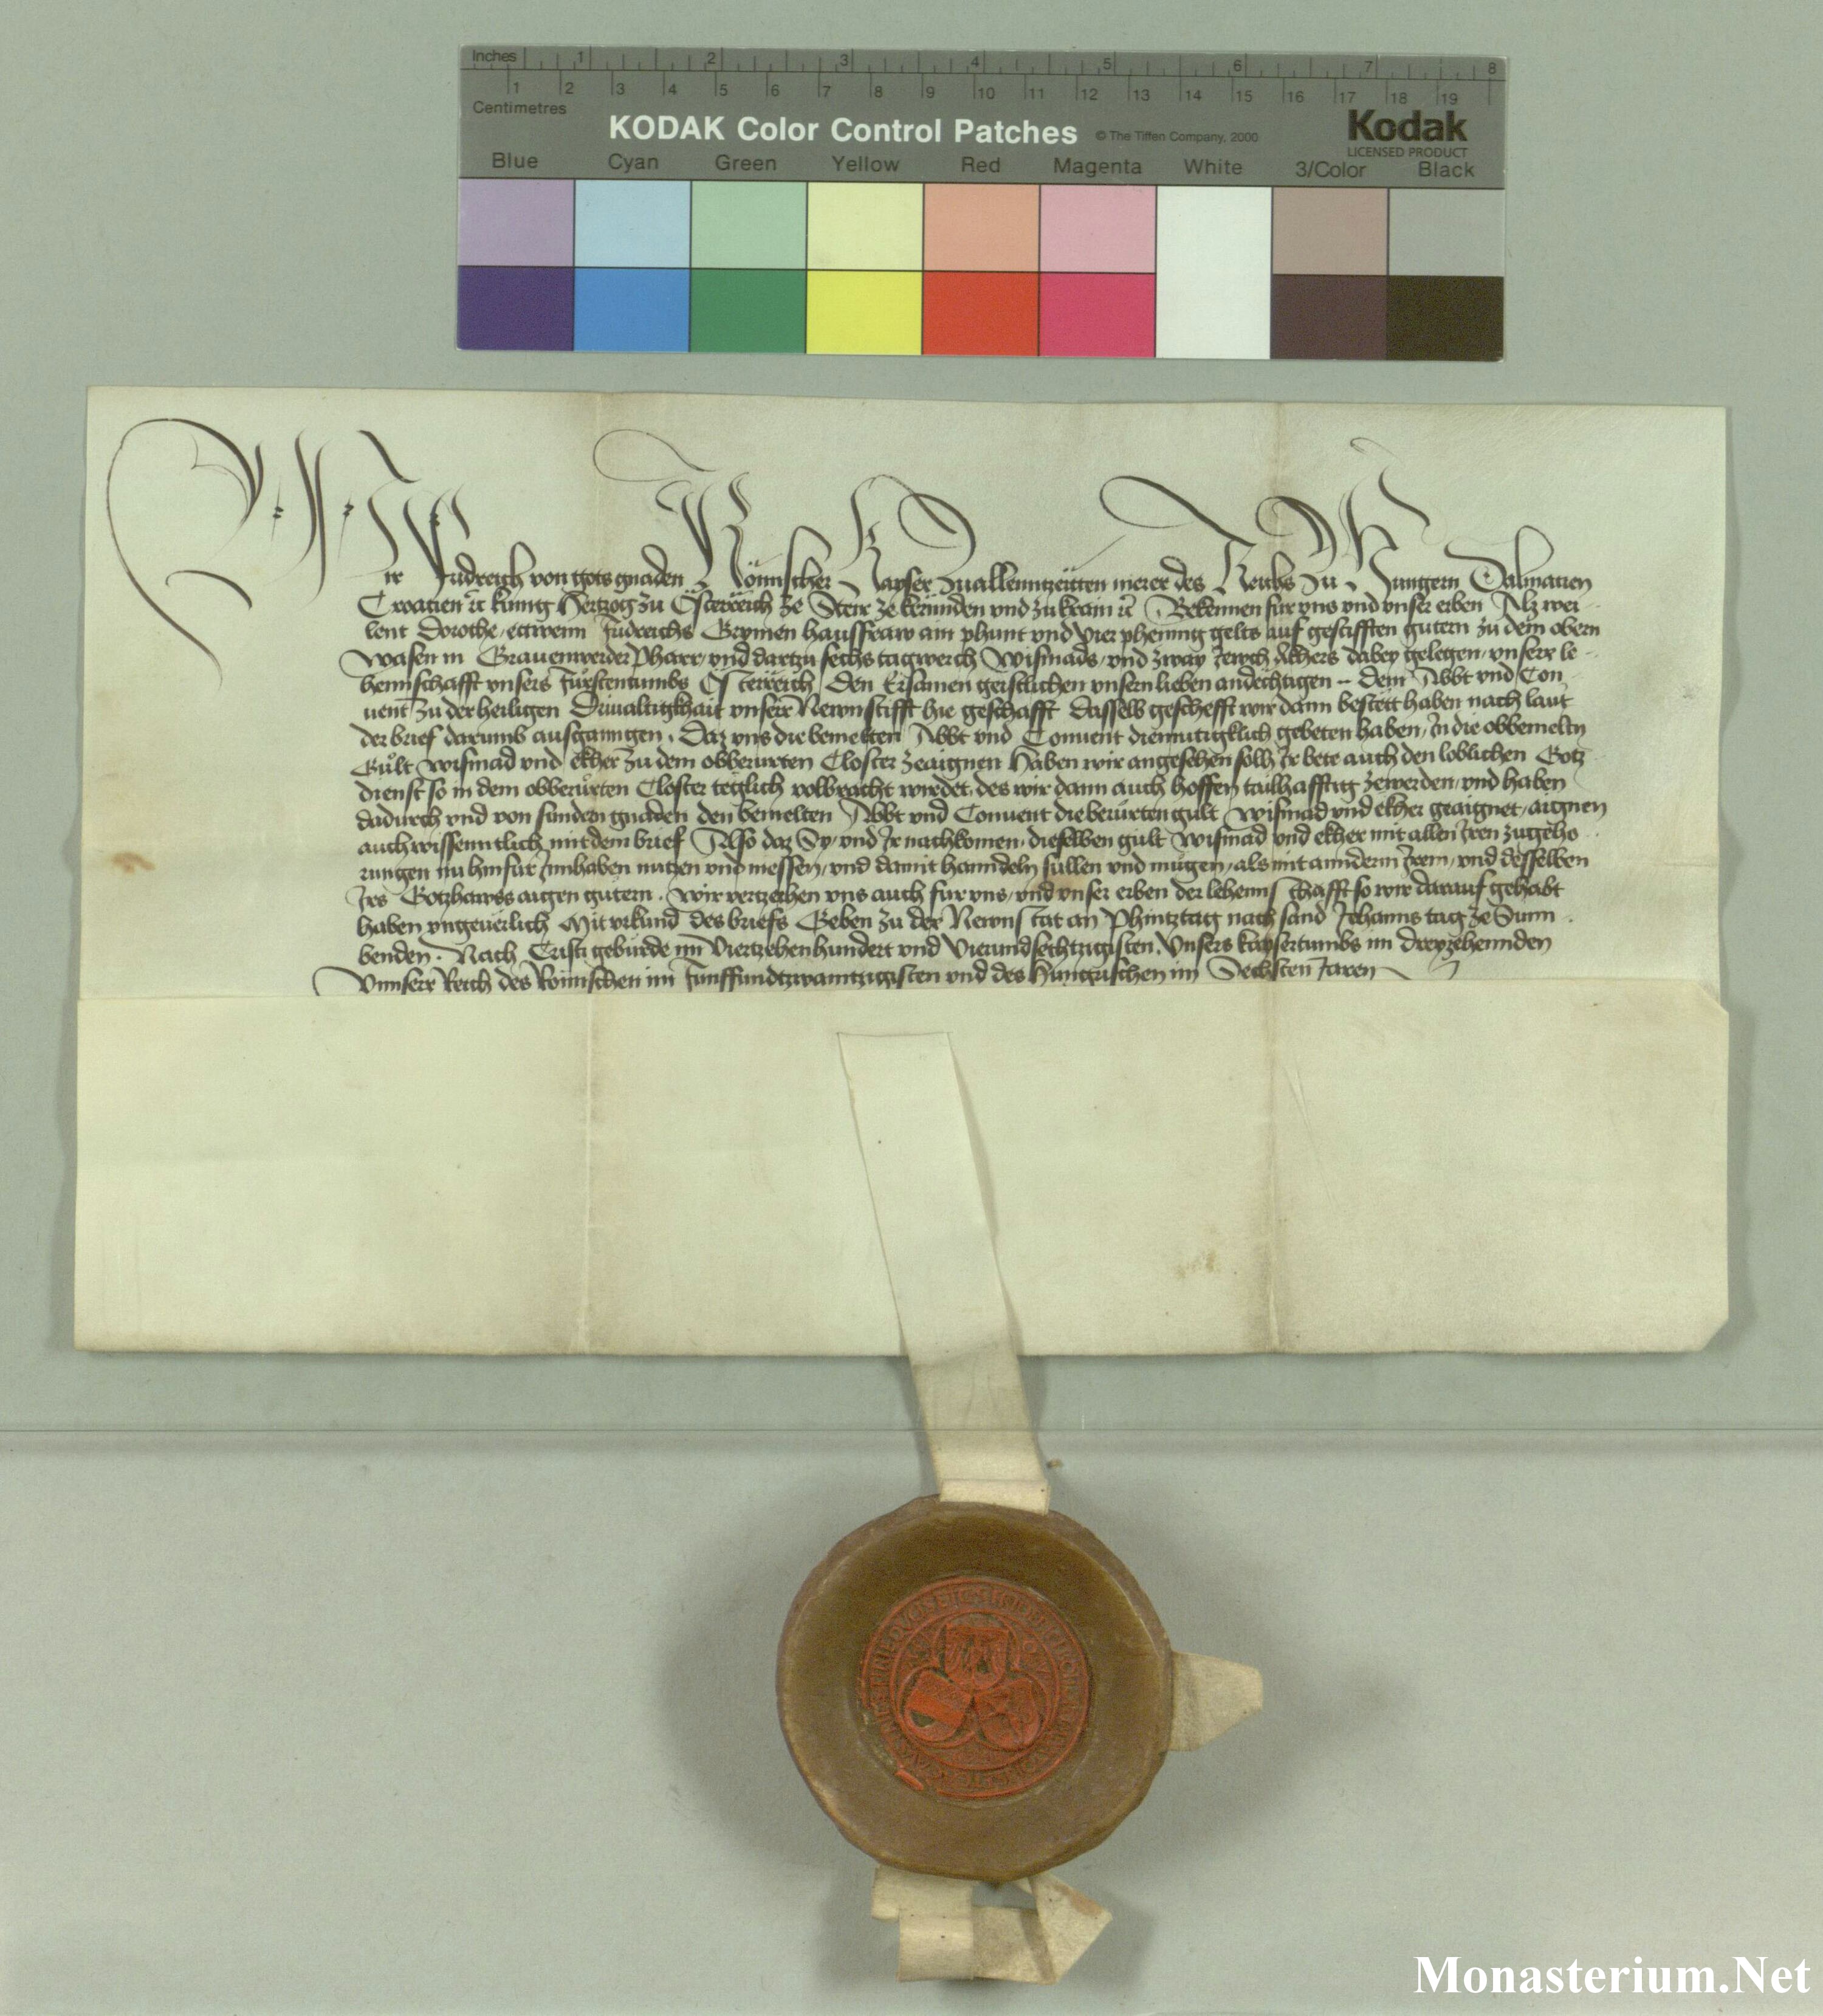 Inches 1 2 3 4 5 6 7 8
1 2 3 4 5 6 7 8 9 10 11 12 13 14 15 16 17 18 19
Centimetres
KODAK Color Control Patches © The Tiffen Company, 2000 Kodak
LICENSED PRODUCT
Blue Cyan Green Yellow Red Magenta White 3/Color Black
Wir Fridreich von gots gnaden Römischer Kayser zuallenntzeitten merer des Reichs zu Hungern Dalmatien
Croatien etc kunig Hertzog zu Österreich ze Steir ze kernnden vnd zu krain etc Bekennen fur vns vnd vnser erben Als wei-
lent Dorothe, ettwenn Fridreichs Grymen hausfraw ain phunt vnd vier phennig gelts auf gestifften gutern zu dem obern
Wasen in Grauenwerder Pharr, vnd dartzu sechs tagwerch Wismads, vnd zway Jewch Akhers dabey gelegen, vnserr le-
hennschafft vnsers Fürstentumbs Österreich den Ersamen geistlichen vnsern lieben andechtigen .. dem Abbt vnd Con-
uent zu der heiligen Driualtigkhait vnserr Newnstifft hie geschafft dasselb geschefft wir dann bestett haben nach laut
der brief darumb ausgangen. Daz vns die bemelten Abbt vnd Conuent diemutigklich gebeten haben, In die obbemeltn
Gült Wismad vnd ekher zu dem obberurten Closter zeaignen Haben wir angesehen solh Ir bete auch den loblichen Gotz-
dienst so in dem obberürten Closter teglich volbracht wirdet, des wir dann auch hoffen tailhafftig zewerden, vnd haben
dadurch vnd von sundern gnaden den bemelten Abbt vnd Conuent die berürten gült Wismad vnd ekher geaignet, aignen
auch wissenntlich mit dem brief Also daz Sy, vnd Ir nachkomen, dieselben gült Wismad vnd ekher mit allen Iren zugeho-
rungen nu hinfür Innhaben nutzen vnd niessen, vnd damit hanndeln sullen vnd mügen, als mit anndern Irem, vnd desselben
Irs Gotzhawss aigen gutern. Wir vertzeihen vns auch fur vns, vnd vnser erben der lehennschafft so wir darauf gehabt
haben vngeuerlich Mit vrkund des briefs Geben zu der Newnstat an Phintztag nach sand Johanns tag ze Sunn-
benden. Nach Cristi geburde im Viertzehenhundert vnd Vierundsechtzigisten. Vnsers kaysertumbs im dreyzehennden
Vnnserr Reich des Römischen im Funffundtzwanntzigisten vnd des Hungrischen im Sechsten Jaren
Monasterium.Net